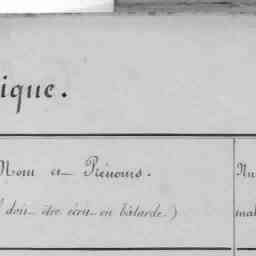 ique.
Nom et Prénoms.
doit être écrit en bâtarde.)